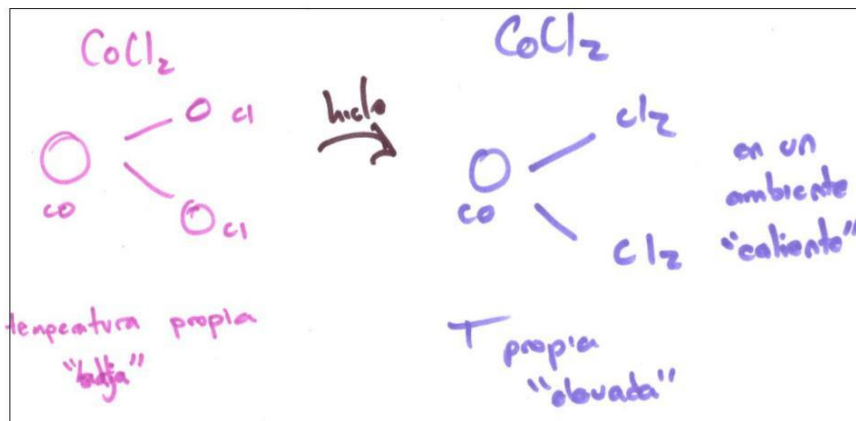 CoCl2
Cl
Co
Cl
temperatura propia
"baja"
hielo
CoCl2
Cl2
Co
Cl2
en un
ambiente
"caliente"
T propia
"elevada"